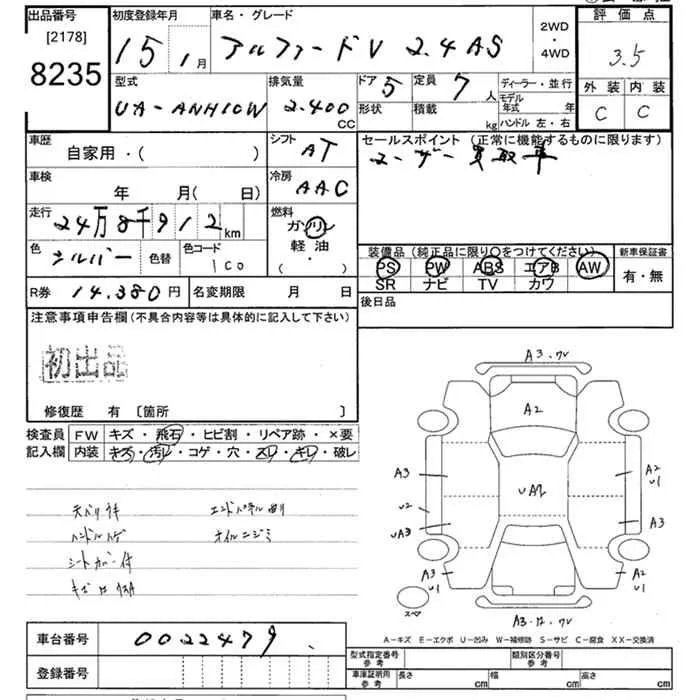 出品番号
[2178]
8235
初度登録年月
15年1月
車名・グレード
アルファードV 2.4AS
2WD
・
4WD
評価点
3.5
外装 内装
C C
型式
UA-ANH10W
排気量
2.400
CC
ドア 5
形状
定員 7人
積載 kg
ディーラー・並行
モデル年式 年
ハンドル 左・右
車歴
自家用・( )
シフト
AT
セールスポイント (正常に機能するものに限ります)
ユーザー買取車
車検
年 月(日)
冷房
AAC
走行
24万8千912km
燃料
ガソリン
軽油
( ・ )
色
シルバー
色替
色コード
1C0
装備品(純正品に限り○をつけてください)
PS PW ABS エアB AW
SR ナビ TV カワ
新車保証書
有・無
R券 14.380円
名変期限 月 日
後日品
注意事項申告欄(不具合内容等は具体的に記入して下さい)
初出品
修復歴 有 〔箇所 〕
検査員
記入欄
FW キズ・飛石・ヒビ割・リペア跡・×要
内装 キズ・汚レ・コゲ・穴・スレ・キレ・破レ
天バリウキ エンドパネル曲リ
ハンドルハゲ オイルニジミ
シートカバー付
A3.W
A2
A3
UA2
A2
U1
U2
UA3
A3
A3
U1
A2
U1
スペア
A3.U2.W
A-キズ E-エクボ U-凹み W-補修跡 S-サビ C-腐食 XX-交換済
車台番号
0022479
登録番号
型式指定番号
参考
類別区分番号
参考
車庫証明用
参考
長さ cm
幅 cm
高さ cm